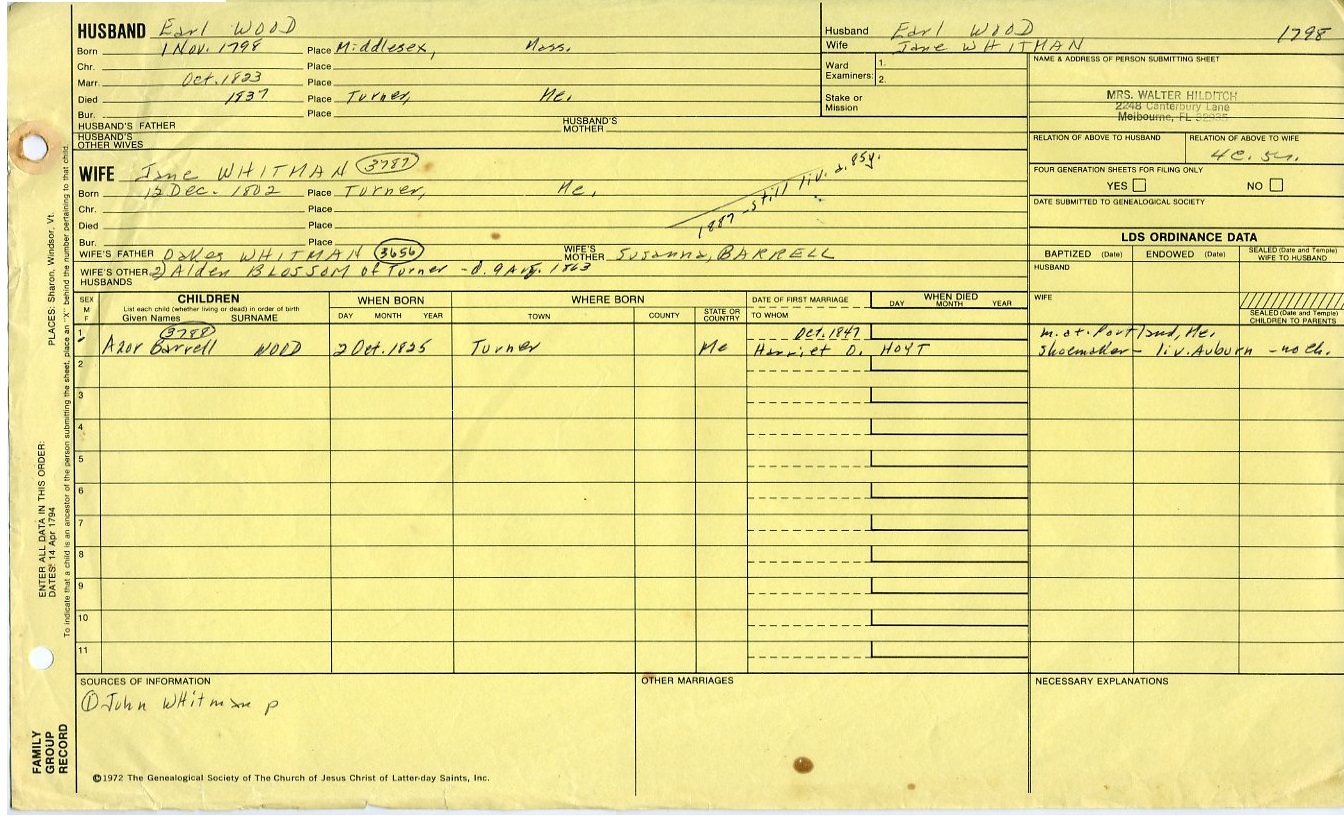 HUSBAND Earl WOOD
Born 1 Nov. 1798 Place Middlesex, Mass.
Chr. Place
Marr. Oct. 1823 Place
Died 1837 Place Turner, Me.
Bur. Place
HUSBAND'S FATHER HUSBAND'S MOTHER
HUSBAND'S OTHER WIVES
Husband Earl WOOD 1798
Wife Jane WHITMAN
Ward Examiners: 1. 2.
Stake or Mission
NAME & ADDRESS OF PERSON SUBMITTING SHEET
MRS. WALTER HILDITCH
2248 Canterbury Lane
Melbourne, FL 32935
RELATION OF ABOVE TO HUSBAND RELATION OF ABOVE TO WIFE
4c. 5r.
FOUR GENERATION SHEETS FOR FILING ONLY
YES NO
DATE SUBMITTED TO GENEALOGICAL SOCIETY
WIFE Jane WHITMAN 3787
Born 12 Dec. 1802 Place Turner, Me.
1887 - still liv. a. 85y.
Chr. Place
Died Place
Bur. Place
WIFE'S FATHER Oakes WHITMAN 3656 WIFE'S MOTHER Susanna BARRELL
WIFE'S OTHER HUSBANDS 2) Alden BLOSSOM of Turner - d. 9 Aug. 1863
LDS ORDINANCE DATA
BAPTIZED (Date) ENDOWED (Date) SEALED (Date and Temple) WIFE TO HUSBAND
HUSBAND
WIFE
SEALED (Date and Temple) CHILDREN TO PARENTS
SEX M F
CHILDREN
List each child (whether living or dead) in order of birth
Given Names SURNAME
WHEN BORN
DAY MONTH YEAR
WHERE BORN
TOWN COUNTY STATE OR COUNTRY
DATE OF FIRST MARRIAGE
TO WHOM
WHEN DIED
DAY MONTH YEAR
1 3788 Oct. 1847 m. at Portland, Me.
Azor Barrell WOOD 2 Oct. 1825 Turner Me Harriet D. HOYT shoemaker - liv. Auburn - no ch.
2
3
4
5
6
7
8
9
10
11
SOURCES OF INFORMATION
① John Whitman p
OTHER MARRIAGES
NECESSARY EXPLANATIONS
©1972 The Genealogical Society of The Church of Jesus Christ of Latter-day Saints, Inc.
FAMILY GROUP RECORD
ENTER ALL DATA IN THIS ORDER:
DATES: 14 Apr 1794
PLACES: Sharon, Windsor, Vt.
To indicate that a child is an ancestor of the person submitting the sheet, place an "X" behind the number pertaining to that child.